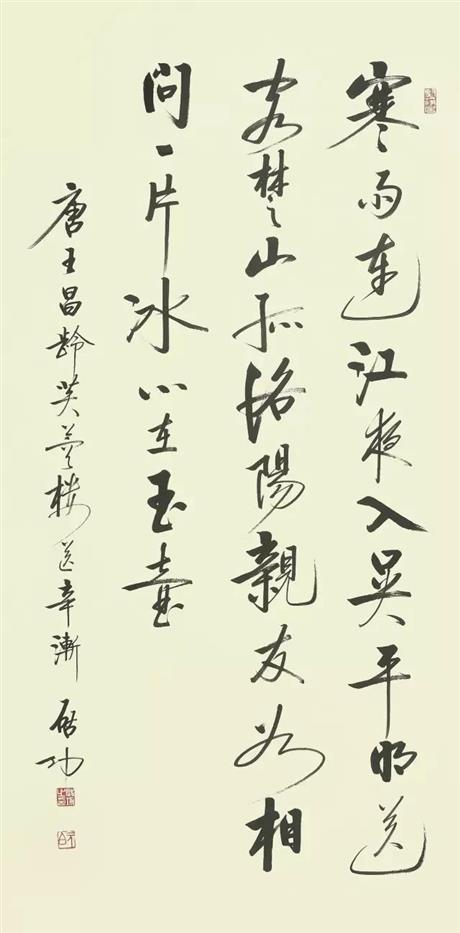 寒雨連江夜入吳平明送
客楚山孤洛陽親友如相
問一片冰心在玉壺
唐王昌齡芙蓉樓送辛漸 啟功